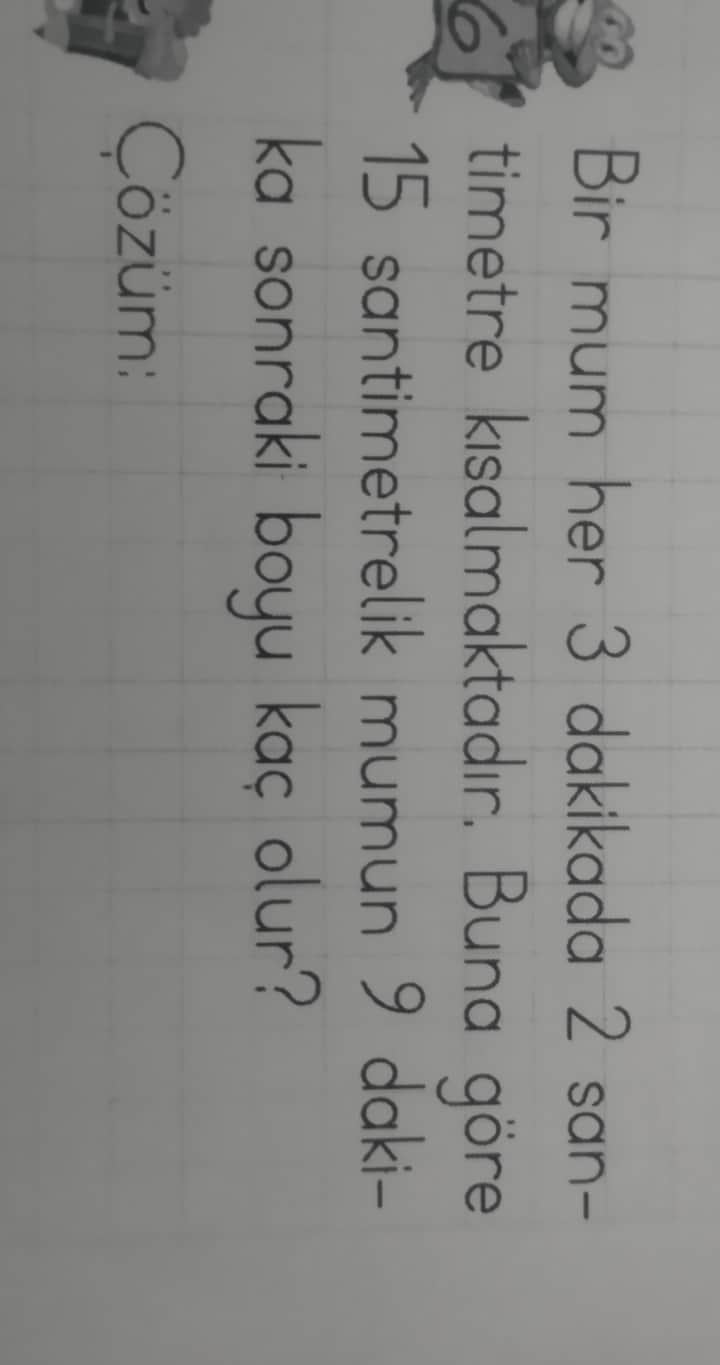 6
Bir mum her 3 dakikada 2 san-
timetre kısalmaktadır. Buna göre
15 santimetrelik mumun 9 daki-
ka sonraki boyu kaç olur?
Çözüm: